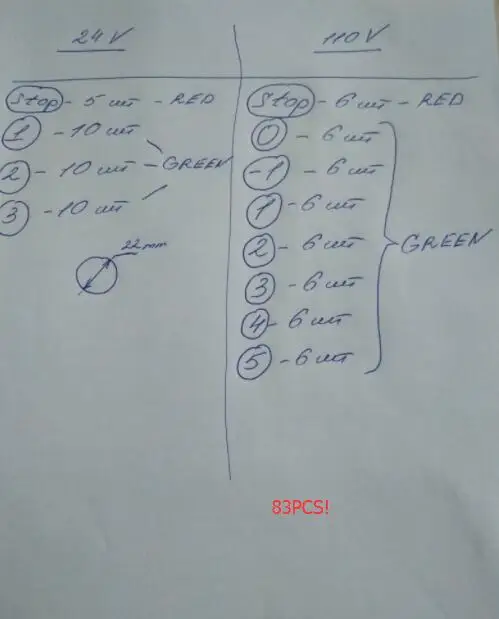 24V
Stop - 5 шт - RED
1 - 10 шт
2 - 10 шт - GREEN
3 - 10 шт
22mm
110V
Stop - 6 шт - RED
0 - 6 шт
-1 - 6 шт
1 - 6 шт
2 - 6 шт
3 - 6 шт
4 - 6 шт
5 - 6 шт
GREEN
83PCS!